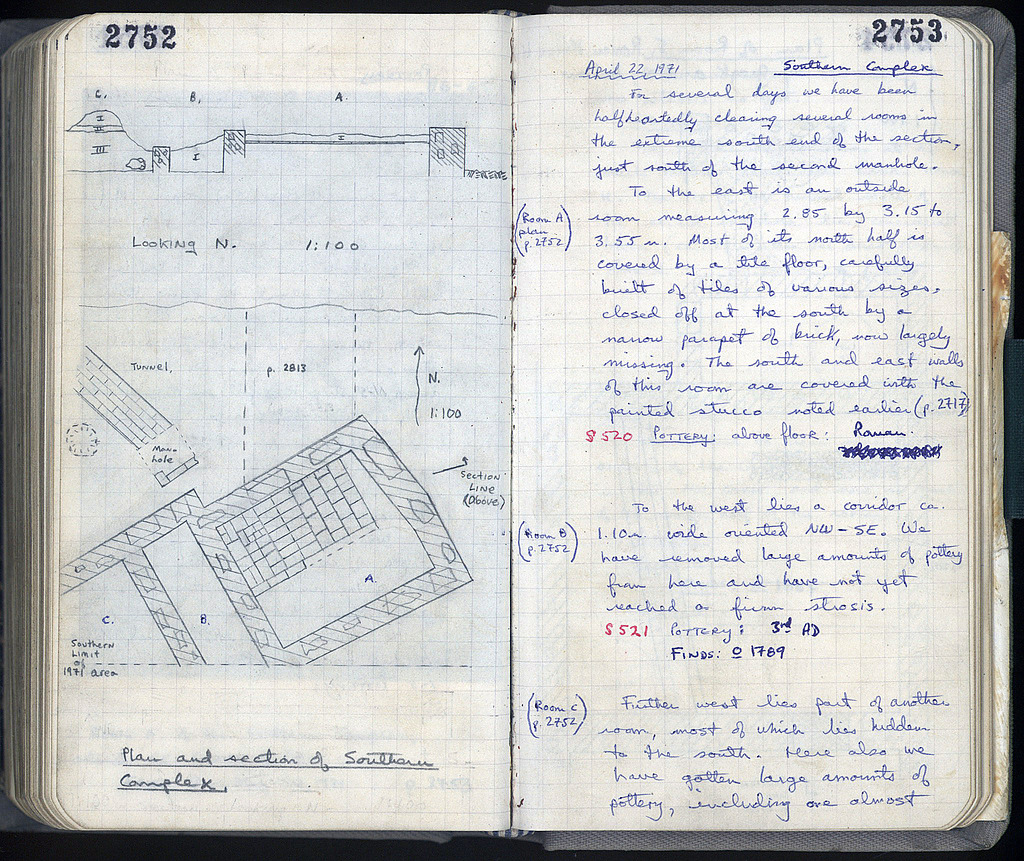 2752
C. B. A.
I
II
III
I
I
LOOKING N. 1:100
TUNNEL,
p. 2813
N.
1:100
Man-
hole
SECTION
LINE
(Above)
A.
B.
C.
Southern
Limit
of
1971 area
Plan and section of Southern
Complex.
2753
April 22, 1971 Southern Complex
For several days we have been
halfheartedly clearing several rooms in
the extreme south end of the section,
just south of the second manhole.
To the east is an outside
(Room A
plan
p. 2752)
room measuring 2.85 by 3.15 to
3.55 m. Most of its north half is
covered by a tile floor, carefully
built of tiles of various sizes,
closed off at the south by a
narrow parapet of brick, now largely
missing. The south and east walls
of this room are covered with the
painted stucco noted earlier (p. 2717)
S 520 POTTERY: above floor: Roman.
To the west lies a corridor ca.
(Room B
p. 2752)
1.10 m. wide oriented NW-SE. We
have removed large amounts of pottery
from here and have not yet
reached a firm strosis.
S 521 POTTERY: 3rd AD
FINDS: O 1789
(Room C
p. 2752)
Further west lies part of another
room, most of which lies hidden
to the south. Here also we
have gotten large amounts of
pottery, including one almost